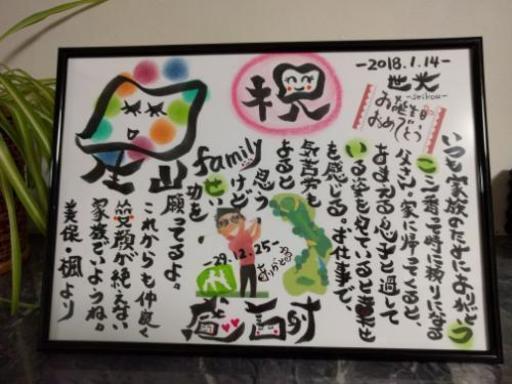 祝
-2018.1.14-
世光
-seikou-
お誕生日
おめでとう
いつも家族のためにありがとう
ここ一番って時に頼りになる
父さん。家に帰ってくると、
あまえる息子と過して
いる姿を見ていると幸せ
を感じる。お仕事で、
気苦労も
あると
思う
けど
family
成功を
願ってるよ。
これからも仲良く
笑顔が絶えない
家族でいようね。
美保・楓より
-29.12.25-
ありがとう
感謝